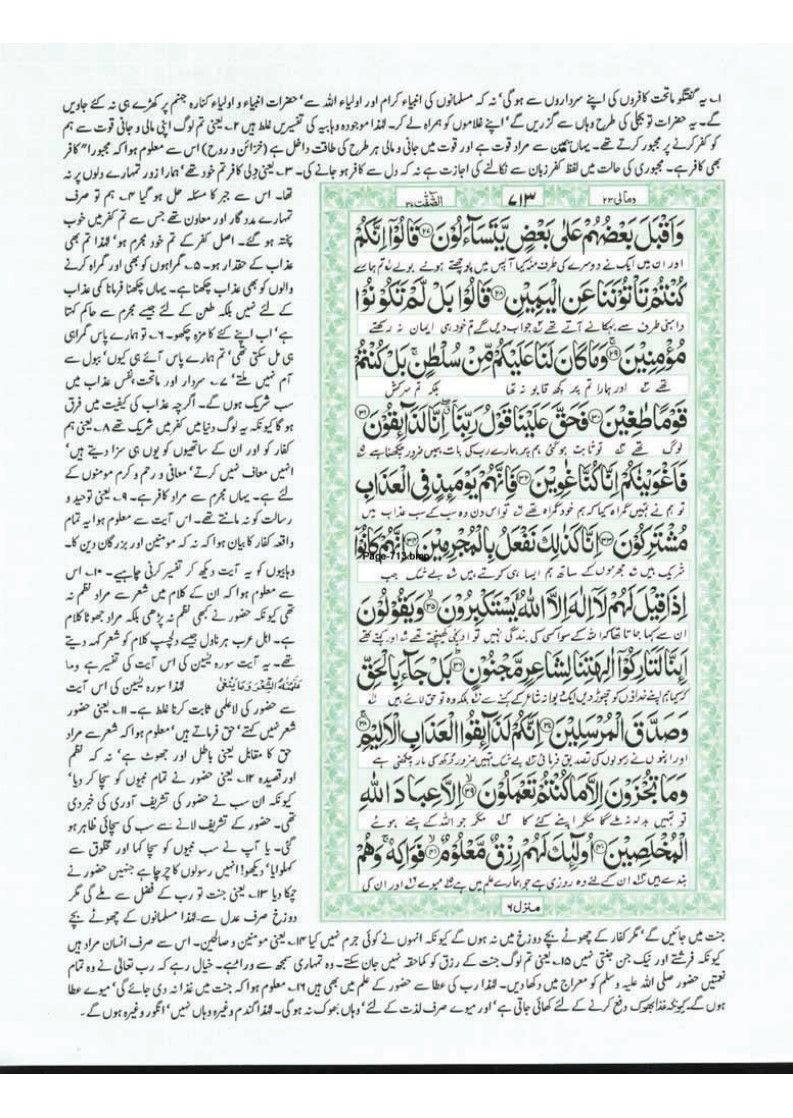 ۱۔ یہ گفتگو ماتحت کافروں کی اپنے سرداروں سے ہوگی' نہ کہ مسلمانوں کی انبیاء کرام اور اولیاء اللہ سے' حضرات انبیاء و اولیاء کنارہ جہنم پر کھڑے ہی نہ کئے جاویں
گے۔ یہ حضرات تو بجلی کی طرح وہاں سے گزریں گے' اپنے غلاموں کو ہمراہ لے کر۔ لہٰذا موجودہ وہابیہ کی تفسیریں غلط ہیں ۲۔ یعنی تم لوگ اپنی مالی و جانی قوت سے ہم
کو کفر کرنے پر مجبور کرتے تھے۔ یہاں یمین سے مراد قوت ہے اور قوت میں جانی و مالی ہر طرح کی طاقت داخل ہے (خزائن و روح) اس سے معلوم ہوا کہ مجبورا" کافر
بھی کافر ہے۔ مجبوری کی حالت میں لفظ کفر زبان سے نکالنے کی اجازت ہے نہ کہ دل سے کافر ہو جانے کی۔ ۳۔ یعنی دلی کافر تم خود تھے' ہمارا زور تمہارے دلوں پر نہ
تھا۔ اس سے جبر کا مسئلہ حل ہو گیا ۴۔ ہم تو صرف
تمہارے مدد گار اور معاون تھے جس سے تم کفر میں خوب
پختہ ہو گئے۔ اصل کفر کے تم خود مجرم ہو' لہٰذا تم بھی
عذاب کے حقدار ہو۔ ۵۔ گمراہوں کو بھی اور گمراہ کرنے
والوں کو بھی عذاب چکھنا ہے۔ یہاں چکھنا فرمانا کمی عذاب
کے لئے نہیں بلکہ طعن کے لئے جیسے مجرم سے حاکم کہتا
ہے' اب اپنے کئے کا مزہ چکھو۔ ۶۔ تو ہمارے پاس گمراہی
ہی مل سکتی تھی' تم ہمارے پاس آئے ہی کیوں' ببول سے
آم نہیں ملتے' ۷۔ سردار اور ماتحت نفس عذاب میں
سب شریک ہوں گے۔ اگرچہ عذاب کی کیفیت میں فرق
ہو گا کیونکہ یہ لوگ دنیا میں کفر میں شریک تھے ۸۔ یعنی ہم
کفار کو اور ان کے ساتھیوں کو یوں ہی سزا دیتے ہیں'
انہیں معاف نہیں کرتے' معافی و رحم و کرم مومنوں کے
لئے ہے۔ یہاں مجرم سے مراد کافر ہے۔ ۹۔ یعنی توحید و
رسالت کو نہ مانتے تھے۔ اس آیت سے معلوم ہوا یہ تمام
واقعہ کفار کا بیان ہوا کہ نہ کہ مومنین اور بزرگان دین کا۔
وہابیوں کو یہ آیت دیکھ کر تفسیر کرنی چاہیے۔ ۱۰۔ اس
سے معلوم ہوا کہ ان کے کلام میں شعر سے مراد نظم نہ
تھی کیونکہ حضور نے کبھی نظم نہ پڑھی بلکہ مراد جھوٹا کلام
ہے۔ اہل عرب ہر ناول جیسے دلچسپ کلام کو شعر کہہ دیتے
تھے۔ یہ آیت سورہ یٰسین کی اس آیت کی تفسیر ہے وما
علمناہ الشعر وما ینبغی لہٰذا سورہ یٰسین کی اس آیت
سے حضور کی لاعلمی ثابت کرنا غلط ہے۔ ۱۱۔ یعنی حضور
شعر نہیں کہتے' حق فرماتے ہیں' معلوم ہوا کہ شعر سے مراد
حق کا مقابل یعنی باطل اور جھوٹ ہے' نہ کہ نظم
اور قصیدہ ۱۲۔ یعنی حضور نے تمام نبیوں کو سچا کر دیا'
کیونکہ ان سب نے حضور کی تشریف آوری کی خبر دی
تھی۔ حضور کے تشریف لانے سے سب کی سچائی ظاہر ہو
گئی۔ یا آپ نے سب نبیوں کو سچا کہا اور مخلوق سے
کہلوایا' دیکھو! انہیں رسولوں کا چرچا ہے جنہیں حضور نے
چمکا دیا ۱۳۔ یعنی جنت تو رب کے فضل سے ملے گی مگر
دوزخ صرف عدل سے، لہٰذا مسلمانوں کے چھوٹے بچے
ومالی ۲۳
۷۱۳
الصّٰفّٰت ۳۷
وَاَقْبَلَ بَعْضُهُمْ عَلٰى بَعْضٍ يَّتَسَآءَلُوْنَ ۲۷ قَالُوْٓا اِنَّكُمْ
اور ان میں ایک نے دوسرے کی طرف منہ کیا آپس میں پوچھتے ہوئے بولے تم ہمارے
كُنْتُمْ تَاْتُوْنَنَا عَنِ الْيَمِيْنِ ۲۸ قَالُوْا بَلْ لَّمْ تَكُوْنُوْا
داہنی طرف سے بہکانے آتے تھے جواب دیں گے تم خود ہی ایمان نہ رکھتے
مُؤْمِنِيْنَ ۲۹ وَمَا كَانَ لَنَا عَلَيْكُمْ مِّنْ سُلْطٰنٍ بَلْ كُنْتُمْ
تھے اور ہمارا تم پر کچھ قابو نہ تھا بلکہ تم سرکش
قَوْمًا طٰغِيْنَ ۳۰ فَحَقَّ عَلَيْنَا قَوْلُ رَبِّنَآ اِنَّا لَذَآئِقُوْنَ ۳۱
لوگ تھے تو ثابت ہوگئی ہم پر ہمارے رب کی بات ہمیں ضرور چکھنا ہے
فَاَغْوَيْنٰكُمْ اِنَّا كُنَّا غٰوِيْنَ ۳۲ فَاِنَّهُمْ يَوْمَئِذٍ فِى الْعَذَابِ
تو ہم نے تمہیں گمراہ کیا کہ ہم خود گمراہ تھے تو اس دن وہ سب کے سب عذاب میں
مُشْتَرِكُوْنَ ۳۳ اِنَّا كَذٰلِكَ نَفْعَلُ بِالْمُجْرِمِيْنَ ۳۴ اِنَّهُمْ كَانُوْٓا
Page-713.bmp
شریک ہیں مجرموں کے ساتھ ہم ایسا ہی کرتے ہیں بے شک جب
اِذَا قِيْلَ لَهُمْ لَآ اِلٰهَ اِلَّا اللّٰهُ يَسْتَكْبِرُوْنَ ۳۵ وَيَقُوْلُوْنَ
ان سے کہا جاتا تھا کہ اللہ کے سوا کسی کی بندگی نہیں تو اونچی کھینچتے تھے اور کہتے تھے
اَئِنَّا لَتَارِكُوْٓا اٰلِهَتِنَا لِشَاعِرٍ مَّجْنُوْنٍ ۳۶ بَلْ جَآءَ بِالْحَقِّ
کیا ہم اپنے خداؤں کو چھوڑ دیں ایک دیوانہ شاعر کے کہنے سے بلکہ وہ تو حق لائے ہیں
وَصَدَّقَ الْمُرْسَلِيْنَ ۳۷ اِنَّكُمْ لَذَآئِقُوا الْعَذَابِ الْاَلِيْمِ ۳۸
اور انہوں نے رسولوں کی تصدیق فرمائی بے شک تمہیں ضرور دکھ کی مار چکھنی ہے
وَمَا تُجْزَوْنَ اِلَّا مَا كُنْتُمْ تَعْمَلُوْنَ ۳۹ اِلَّا عِبَادَ اللّٰهِ
تو تمہیں بدلہ نہ ملے گا مگر اپنے کئے کا مگر جو اللہ کے چنے ہوئے
الْمُخْلَصِيْنَ ۴۰ اُولٰٓئِكَ لَهُمْ رِزْقٌ مَّعْلُوْمٌ ۴۱ فَوَاكِهُ وَهُمْ
بندے ہیں ان کے لئے وہ روزی ہے جو ہمارے علم میں ہے میوے اور ان کی
منزل ۶
جنت میں جائیں گے' مگر کفار کے چھوٹے بچے دوزخ میں نہ ہوں گے کیونکہ انہوں نے کوئی جرم نہیں کیا ۱۴۔ یعنی مومنین و صالحین۔ اس سے صرف انسان مراد ہیں
کیونکہ فرشتے اور نیک جن جنتی نہیں ۱۵۔ یعنی تم لوگ جنت کے رزق کو کماحقہ نہیں جان سکتے۔ وہ تمہاری سمجھ سے وراء ہے۔ خیال رہے کہ رب تعالیٰ نے وہ تمام
نعمتیں حضور صلی اللہ علیہ و سلم کو معراج میں دکھا دیں۔ لہٰذا رب کی عطا سے حضور کے علم میں بھی ہیں ۱۶۔ معلوم ہوا کہ جنت میں غذا نہ دی جائے گی' میوے عطا
ہوں گے۔ کیونکہ غذا بھوک دفع کرنے کے لئے کھائی جاتی ہے' اور میوے صرف لذت کے لئے' وہاں بھوک نہ ہوگی۔ لہٰذا گندم وغیرہ وہاں نہیں' انگور وغیرہ ہوں گے۔